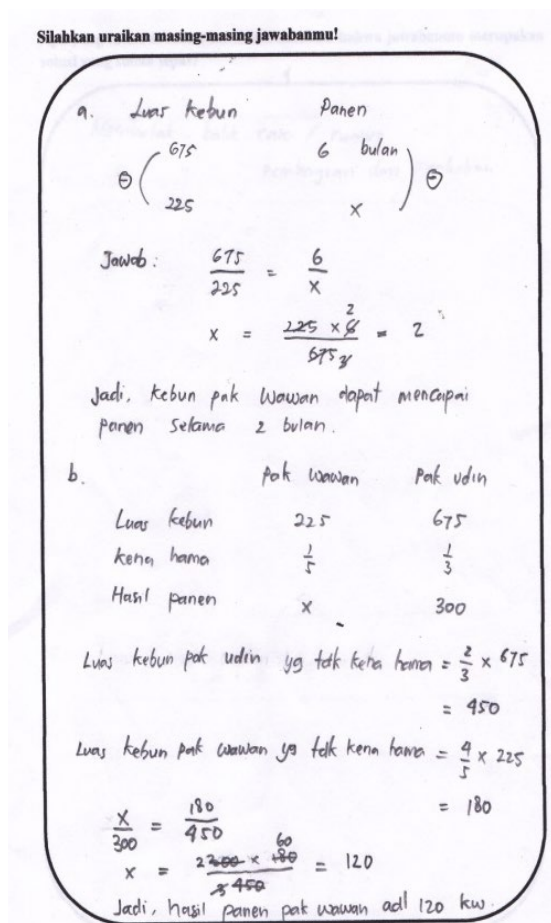 Silahkan uraikan masing-masing jawabanmu!
a. Luas kebun Panen
675 6 bulan
⊖ ( ) ⊖
225 x
Jawab : 675/225 = 6/x
x = 225 x 6 2 / 675 3 = 2
Jadi, kebun pak Wawan dapat mencapai
panen selama 2 bulan.
b. Pak wawan Pak udin
Luas kebun 225 675
kena hama 1/5 1/3
Hasil panen x 300
Luas kebun pak udin yg tdk kena hama = 2/3 x 675
= 450
Luas kebun pak wawan yg tdk kena hama = 4/5 x 225
= 180
x/300 = 180/450
x = 2 300 x 180 60 / 3 450 = 120
Jadi, hasil panen pak wawan adl 120 kw.